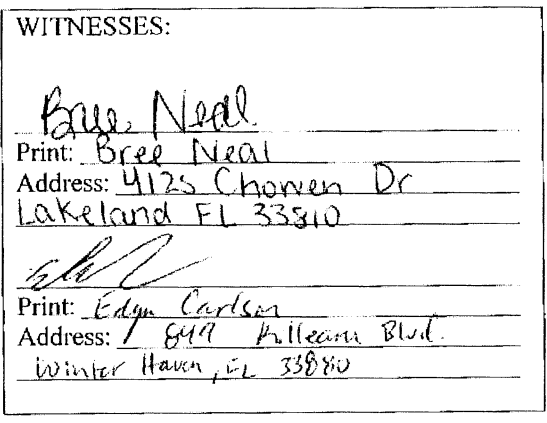 WITNESSES:
Bree Neal
Print: Bree Neal
Address: 4125 Chowen Dr
Lakeland FL 33810
Print: Carlson
Address: 849 Blvd.
Winter Haven, FL